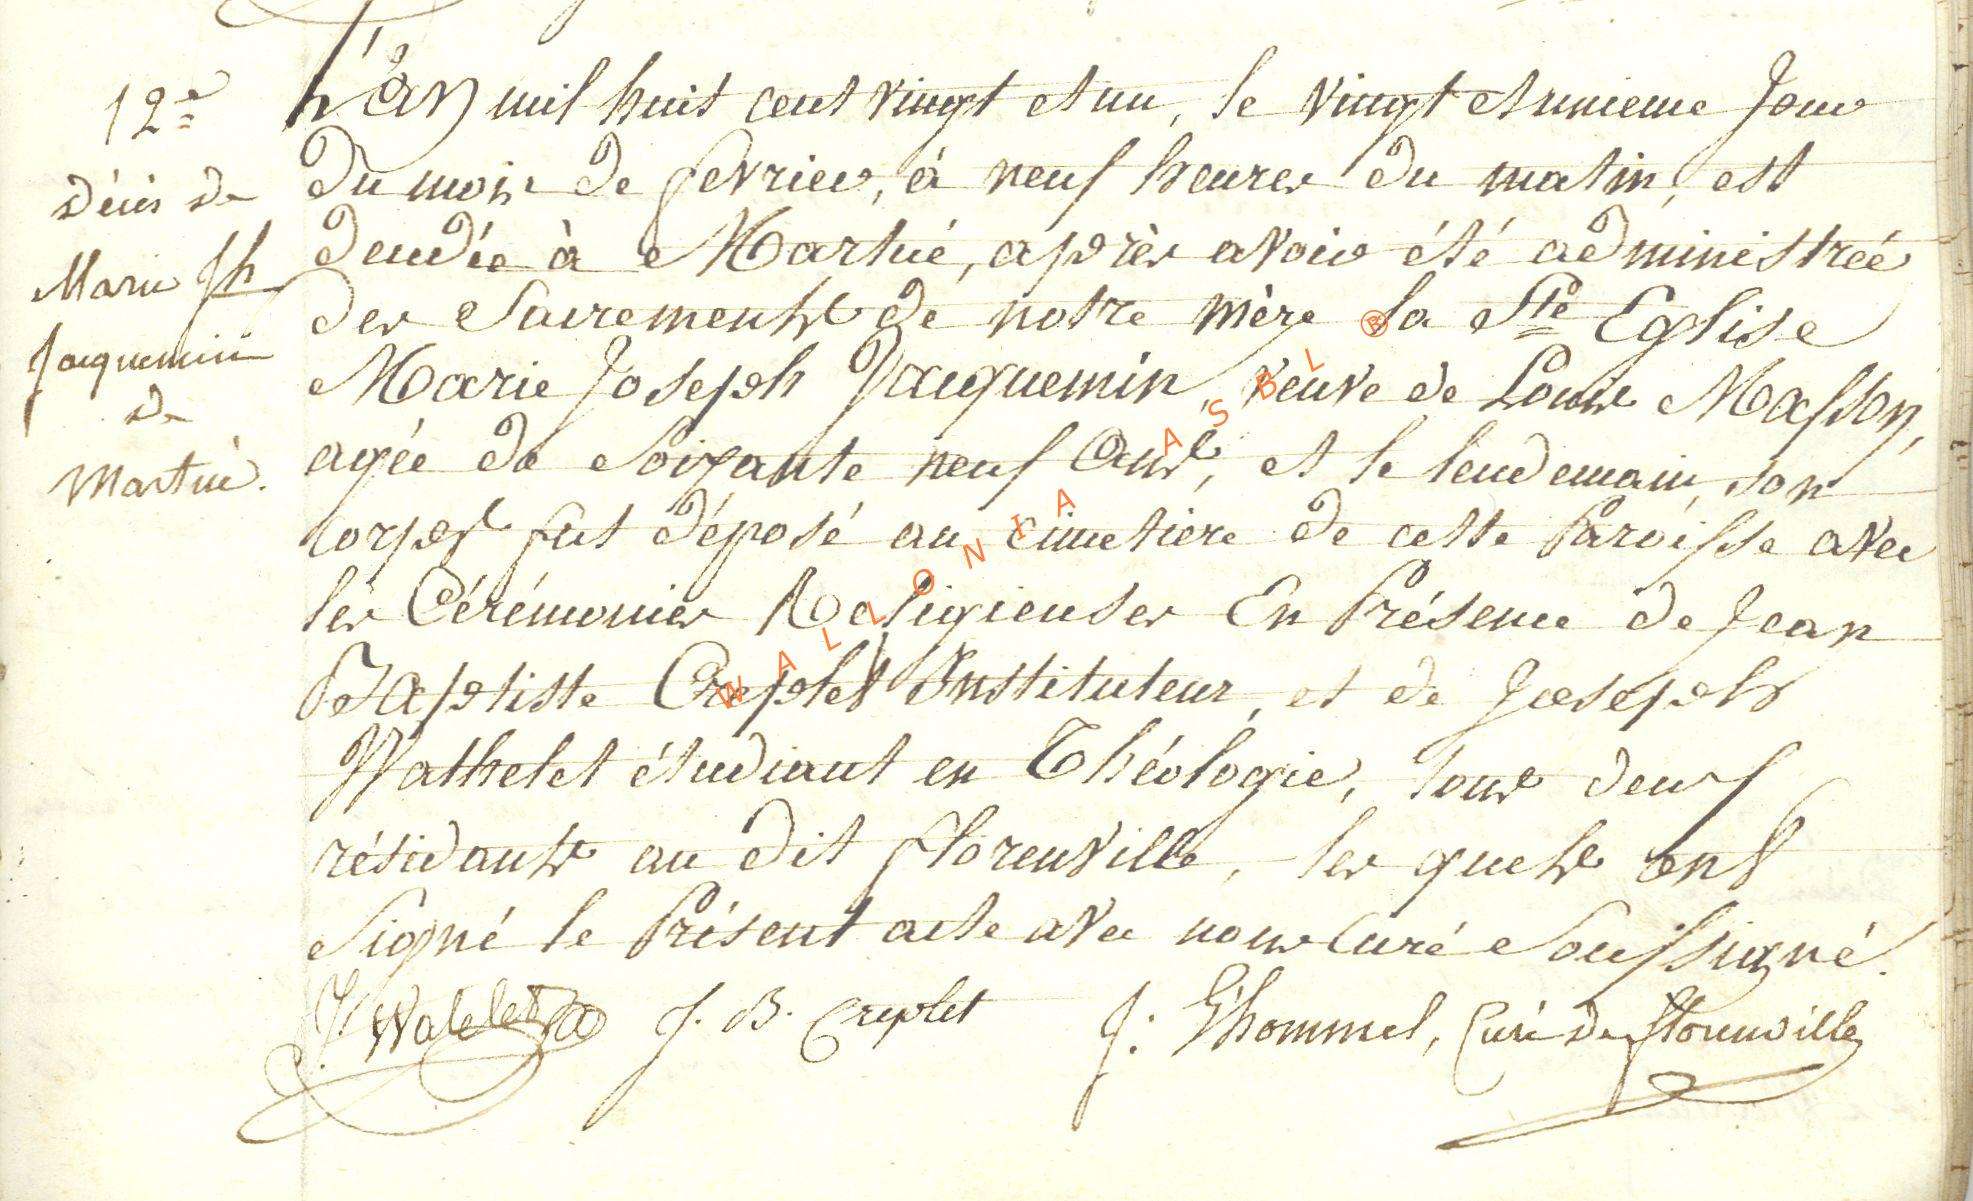 12e
décès de
Marie Jh
Jacquemin
de
Martué.
L'An mil huit cent vingt et un, le vingt et unieme Jour
du mois de fevrier, à neuf heures du matin, est
deudée à Martué, après avoir été administrée
des Sacrements de notre mère la Ste Eglise
Marie Joseph Jacquemin, veuve de Louis Masson,
agée de Soixante neuf Ans, et le lendemain, son
corps fut déposé au cimetiere de cette Paroisse avec
les Cérémonies Religieuses En Présence de Jean
Baptiste Creplet Instituteur, et de Joseph
Wathelet étudiant en Théologie, tous deux
résidants au dit florenville, les quels ont
Signé le Présent acte avec nous Curé Soussigné.
J. Watelet J. B. Creplet J: Thommel, Curé de florenville
WALLONIA ASBL ®